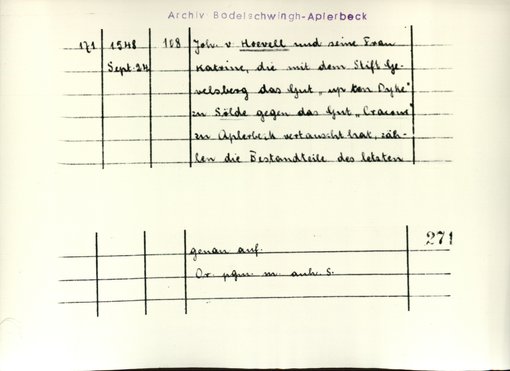 Archiv Bodelschwingh-Aplerbeck
171 1548 188 Joh. v. Hoevell und seine Frau
Sept. 24 Katrine, die mit dem Stift Ge-
velsberg das Gut „up ten Dyke"
zu Sölde gegen das Gut „Cracouw"
zu Aplerbeck vertauscht hat, zäh-
len die Bestandteile des letzten
271
genau auf.
Or. pgm. m. anh. S.